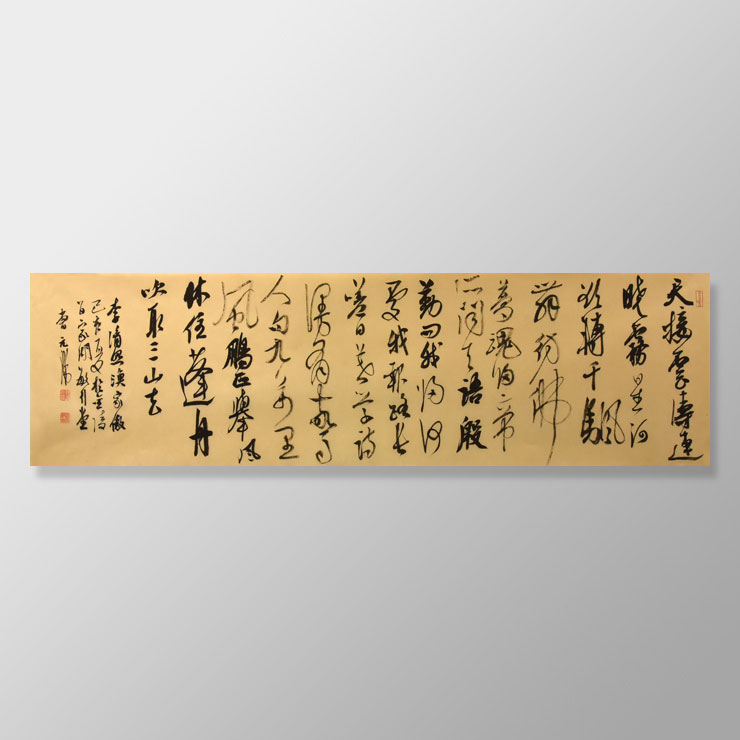 天接雲濤連
曉霧星河
欲轉千颿
舞彷彿
夢魂歸帝
所聞天語殷
勤問我歸何
處我報路長
嗟日暮學詩
謾有驚
人句九萬里
風鵬正舉風
休住蓬舟
吹取三山去
李清照漁家傲
己亥夏於